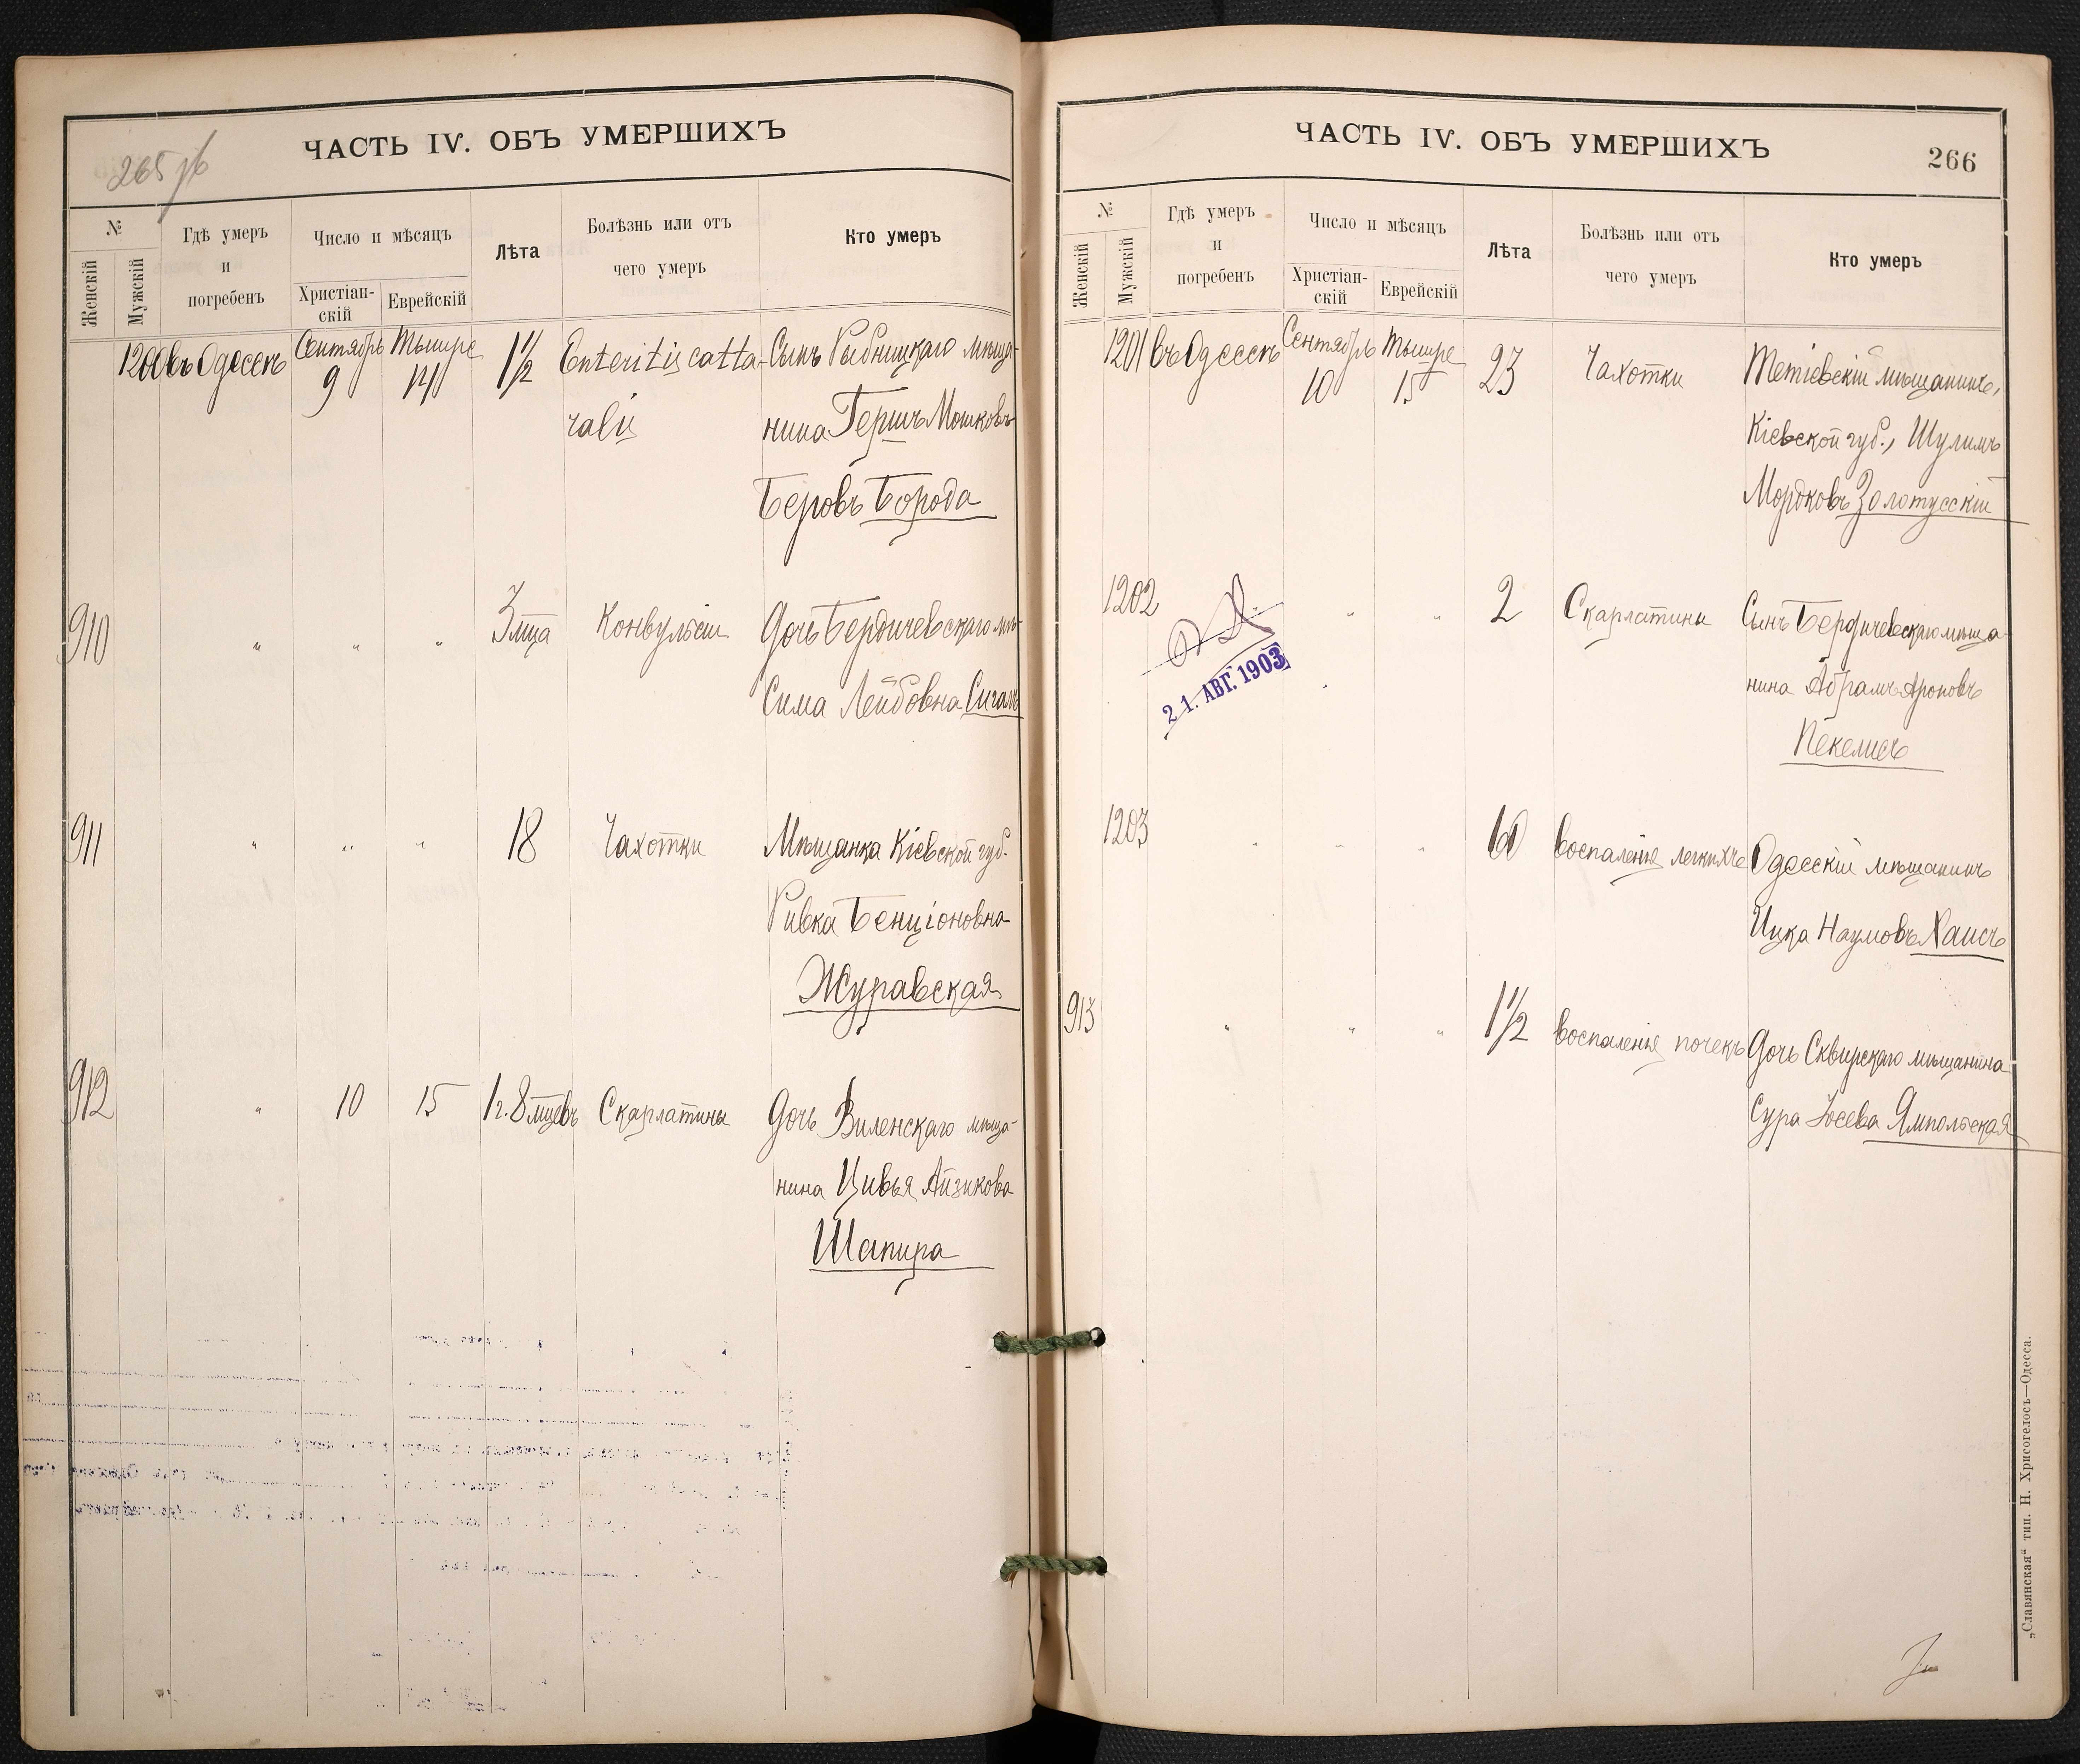 265 об
ЧАСТЬ IV. ОБЪ УМЕРШИХЪ
№
Женскій
Мужскій
Гдѣ умеръ
и
погребенъ
Число и мѣсяцъ
Христіан-
скій
Еврейскій
Лѣта
Болѣзнь или отъ
чего умеръ
Кто умеръ
1200 въ Одессѣ Сентябрь 9 Тышре 14 1½ Enteritis catta- Сынъ Рыбницкаго мѣща-
ralis нина Гершъ Мошковъ
Беровъ Борода
910 " " " 3 мца Конвульсіи Дочь Бердичевскаго мѣ-
Сима Лейбовна Сигалъ
911 " " " 18 Чахотки Мѣщанка Кіевской губ.
Ривка Бенціоновна
Журавская
912 " 10 15 1 г. 8 мцевъ Скарлатины Дочь Виленскаго мѣща-
нина Цивья Айзикова
Шапира
ЧАСТЬ IV. ОБЪ УМЕРШИХЪ
266
№
Женскій
Мужскій
Гдѣ умеръ
и
погребенъ
Число и мѣсяцъ
Христіан-
скій
Еврейскій
Лѣта
Болѣзнь или отъ
чего умеръ
Кто умеръ
1201 въ Одессѣ Сентябрь 10 Тышре 15 23 Чахотки Тетіевскій мѣщанинъ,
Кіевской губ., Шулимъ
Мордковъ Золотусскій
1202 " " 2 Скарлатины Сынъ Бердичевскаго мѣща
нина Абрамъ Ароновъ
Пекелисъ
21. АВГ. 1903
1203 " " " 60 воспаленія легкихъ Одесскій мѣщанинъ
Ицка Наумовъ Хаисъ
913 " " " 1½ воспаленія почекъ Дочь Сквирскаго мѣщанина
Сура Іосева Ямпольская
„Славянская“ тип. Н. Хрисогелосъ—Одесса.